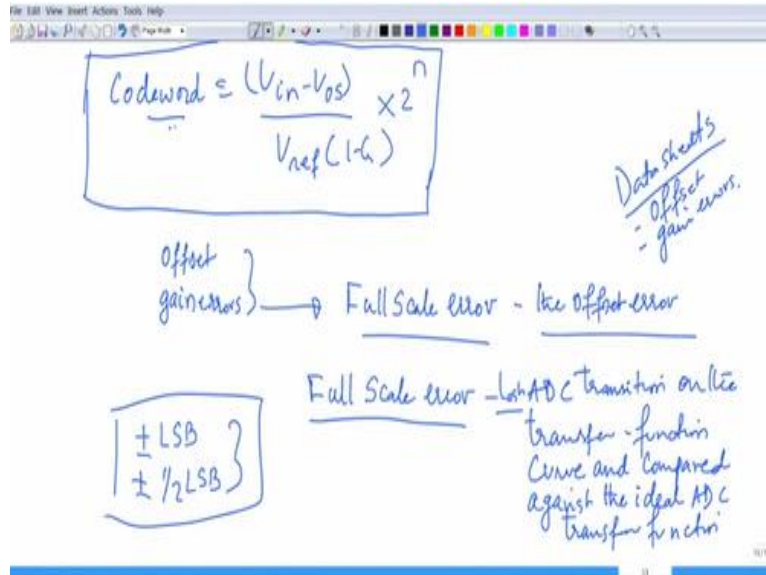 File Edit View Insert Actions Tools Help
Page Width
Codeword = (Vin-Vos) / Vref(1-G) × 2^n
Datasheets
- Offset
- gain errors.
Offset
gain errors } → Full Scale error - the offset error
Full Scale error - Last ADC transition on the
transfer-function
Curve and Compared
against the ideal ADC
transfer function
± LSB
± 1/2 LSB